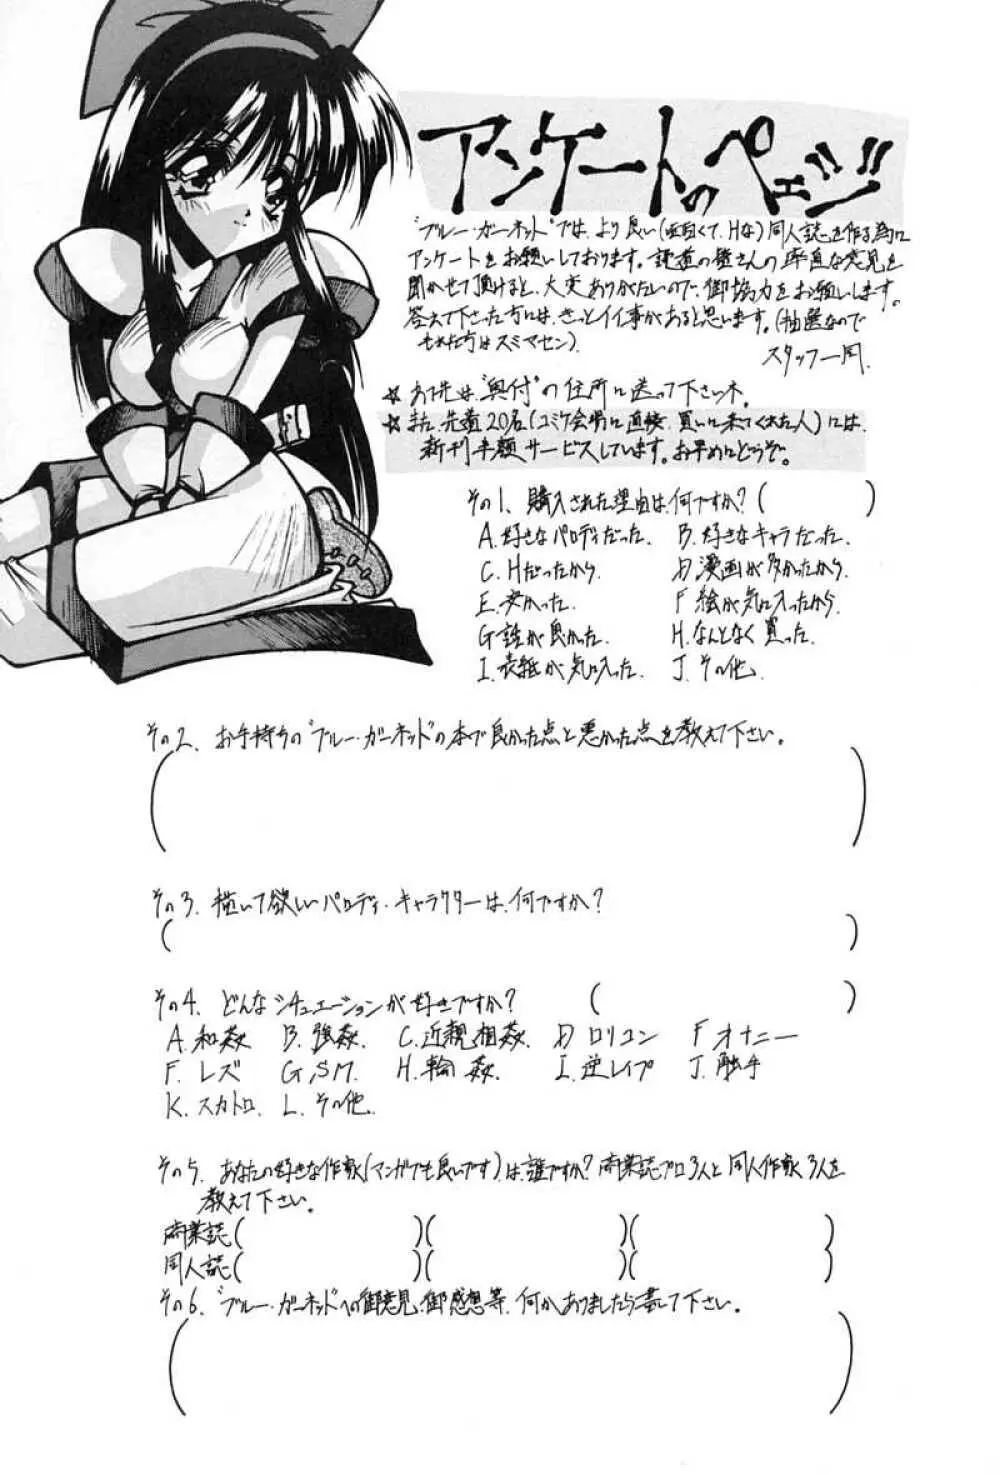 アンケートのページ
"ブルー・ガーネット"では、より良い(面白くて、Hな)同人誌を作る為に
アンケートをお願いしております。読者の皆さんの率直な意見を
聞かせて頂けると、大変ありがたいので、御協力をお願いします。
答えて下さった方には、きっとイイ事があると思います。(抽選なので
もれた方はスミマセン)
スタッフ一同.
☆ あて先は、"奥付"の住所に送って下さいネ。
☆ また、先着20名(コミケ会場に直接、買いに来てくれた人)には、
新刊半額サービスしています。お早めにどうぞ。
その1. 購入された理由は、何ですか?( )
A.好きなパロディだった. B.好きなキャラだった.
C.Hだったから. D漫画が多かったから.
E.安かった. F絵が気に入ったから.
G話が良かった. H.なんとなく買った.
I.表紙が気に入った. J.その他.
その2. お手持ちの"ブルー・ガーネット"の本で良かった点と悪かった点を教えて下さい。
( )
その3. 描いて欲しいパロディ・キャラクターは、何ですか?
( )
その4. どんなシチュエーションが好きですか? ( )
A.和姦 B.強姦. C.近親相姦. D ロリコン F オナニー
F.レズ G,SM. H.輪姦. I.逆レイプ J.触手
K.スカトロ. L.その他.
その5. あなたの好きな作家(マンガでも良いです)は、誰ですか? 商業誌プロ3人と同人作家3人を
教えて下さい。
商業誌( )( )( )
同人誌( )( )( )
その6. "ブルー・ガーネット"への御意見、御感想等、何かありましたら書いて下さい。
( )